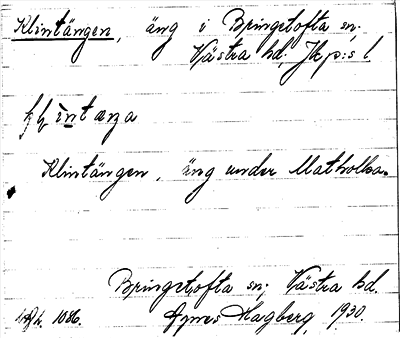 Klintängen, äng i Bringetofta sn;
Västra hd. Jkp:s l
Klintängen, äng under Matholka.
Bringetofta sn; Västra hd.
1086. Agnes Hagberg 1930.